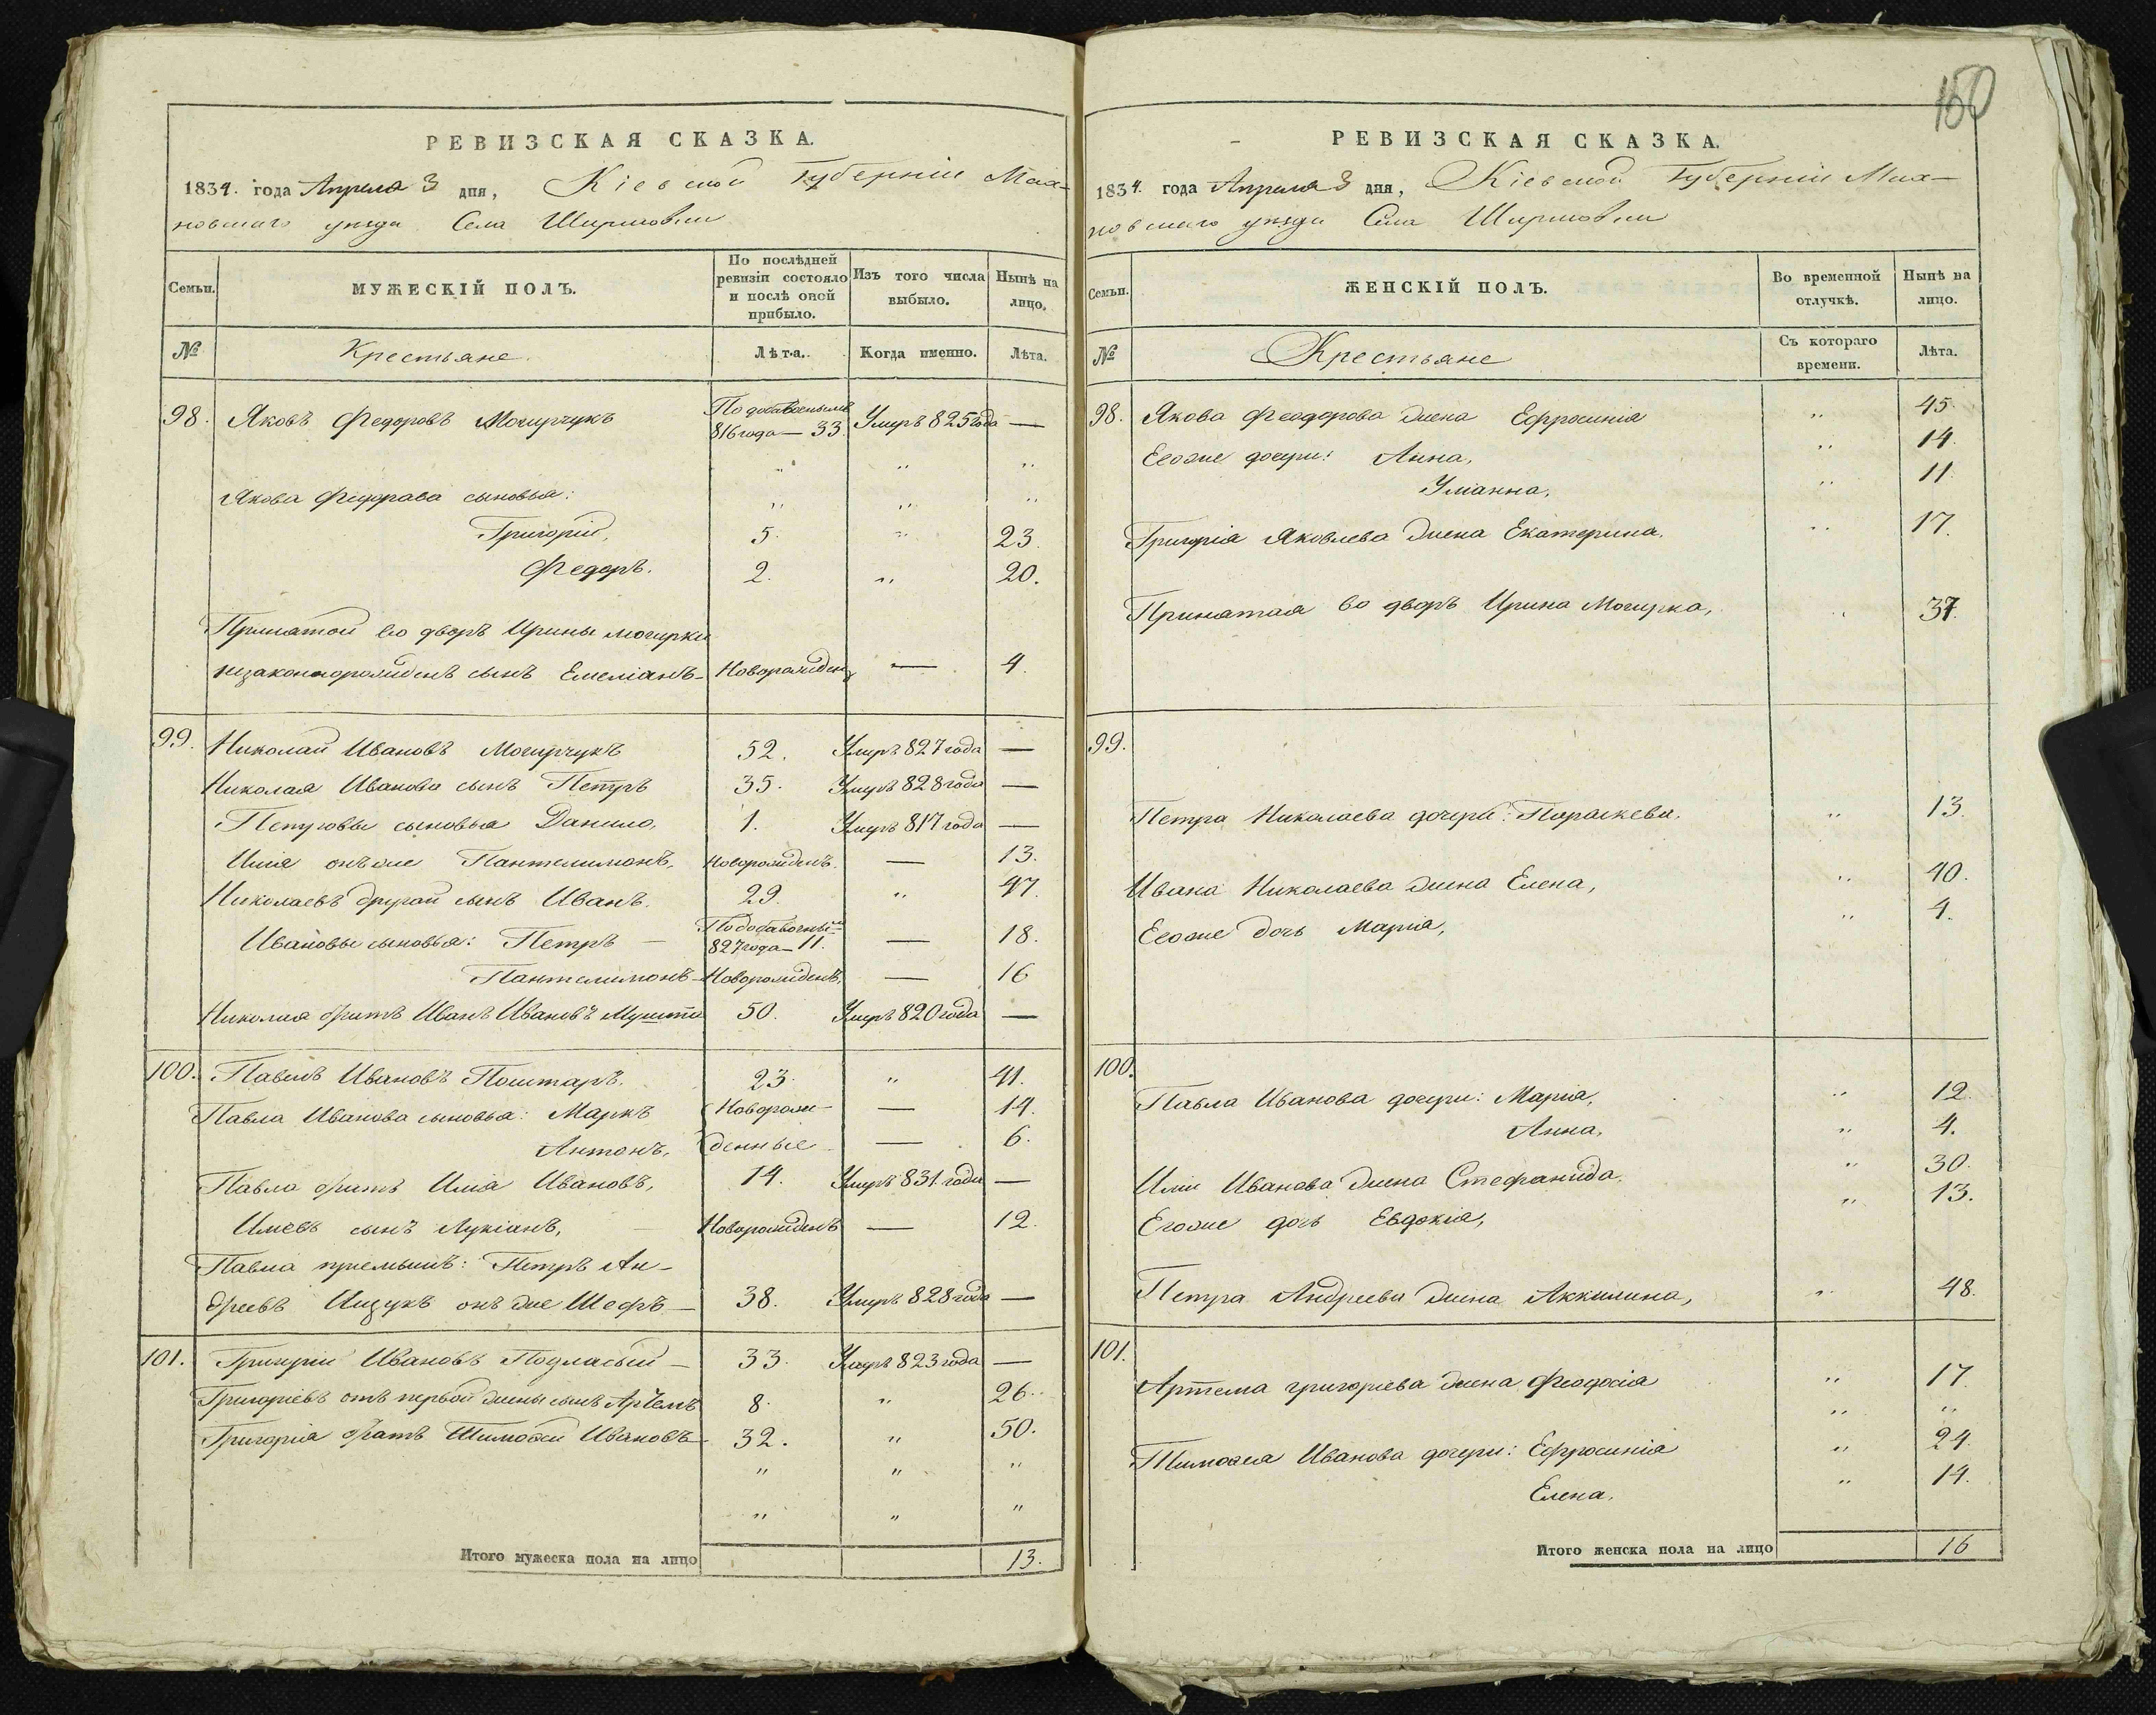 РЕВИЗСКАЯ СКАЗКА.
1834. года Апреля 3 дня, Кіевской Губерніи Мах-
новскаго уезда Села Ширмовки
Семьи.
МУЖЕСКІЙ ПОЛЪ.
По послѣдней ревизіи состояло и послѣ оной прибыло.
Изъ того числа выбыло.
Нынѣ на лицо.
№ Крестьяне Лѣта. Когда именно. Лѣта.
98. Яковъ Федоровъ Мочирчукъ По добавочнымъ 816 года — 33. Умеръ 825 года —
" " "
Якова Федорова сыновья: " " "
Григорій, 5. " 23.
Федоръ. 2. " 20.
Принатой во дворъ Ирины Мочирки
незаконнорожденъ сынъ Емеліанъ — Новорожденъ — 4.
99. Николай Ивановъ Мочирчукъ 52. Умеръ 827 года —
Николая Иванова сынъ Петръ 35. Умеръ 828 года —
Петровы сыновья Данило, 1. Умеръ 817 года —
Пантелимонъ, Новорожденъ. — 13.
Николаевъ другой сынъ Иванъ. 29. " 47.
Ивановы сыновья: Петръ — По добавочнымъ 827 года — 11. — 18.
Пантелимонъ — Новорожденъ, — 16
Николая братъ Иванъ Ивановъ 50. Умеръ 820 года —
100. Павелъ Ивановъ Поштаръ. 23. " 41.
Павла Иванова сыновья: Маркъ Новорож- — 14.
Антонъ, денные — 6.
Павла братъ Илія Ивановъ, 14. Умеръ 831 года —
Илiевъ сынъ Лукіанъ, — Новорожденъ — 12.
Павла приемышъ: Петръ Ан-
дреевъ онъ же Шефъ — 38. Умеръ 828 года —
101. Григорій Ивановъ Подласый — 33. Умеръ 823 года —
Григоріевъ отъ первой жены сынъ Артемъ 8. " 26.
Григорія братъ Тимофей Ивановъ 32. " 50.
" " "
" " "
Итого мужеска пола на лицо 13.
150
РЕВИЗСКАЯ СКАЗКА.
1834. года Апреля 3 дня, Кіевской Губерніи Мах-
новскаго уезда Села Ширмовки
Семьи.
ЖЕНСКІЙ ПОЛЪ.
Во временной отлучкѣ.
Нынѣ на лицо.
№ Крестьяне Съ котораго времени. Лѣта.
98. Якова Феодорова жена Ефросинія " 45.
Егоже дочери: Анна, " 14.
Уліанна, " 11.
Григорія Яковлева жена Екатерина. " 17.
Принатая во дворъ Ирина Мочирка, " 37.
99.
Петра Николаева дочерь: Параскева. " 13.
Ивана Николаева жена Елена, " 40.
Егоже дочь Марія, " 4.
100.
Павла Иванова дочери: Марія, " 12
Анна, " 4.
Иліи Иванова жена Стефанида. " 30.
Егоже дочь Евдокія, " 13.
Петра Андреева жена Аккилина, " 48.
101.
Артема Григорьева жена Феодосія " 17.
" "
Тимофея Иванова дочери: Ефросинія " 24.
Елена, " 14.
Итого женска пола на лицо 16